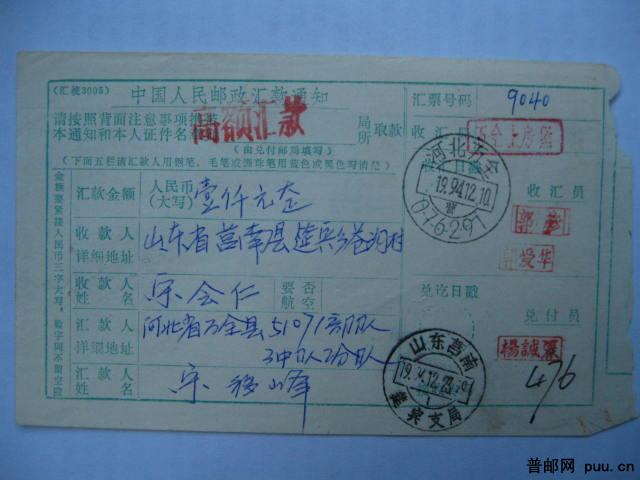 (汇梭3005)
中国人民邮政汇款通知
汇票号码
9040
请按照背面注意事项
高额汇款
本通知和本人证件名章
局
所
取款
收汇
(由兑付邮局填写)
(下面五栏请汇款人用钢笔、毛笔或圆珠笔用蓝色或黑色写清楚)
河北万全
19.94.12.10
076297
收汇员
汇款金额
人民币
(大写)
壹仟元
收款人
详细地址
山东省莒南县
村
收款人
姓名
宋会仁
要否
航空
兑讫日戳
汇款人
详细地址
河北省万全县51071部队
3中队2分队
兑付员
山东莒南
19.94.12.23
支局
476
汇款人
姓名
宋
峰
金额要紧接人民币三字大写，数字间不留空隙
普邮网 puu.cn